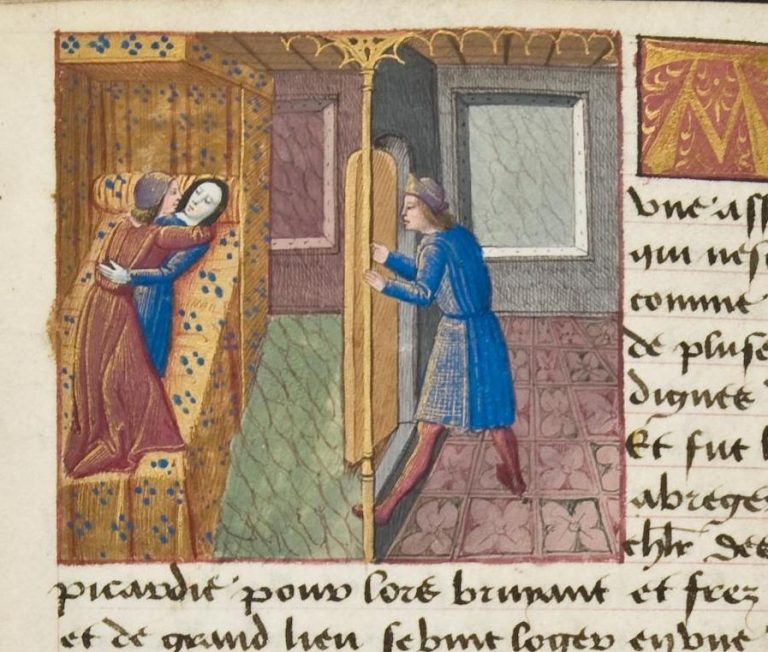 M
vne ass
qui nes
comme
de pluse
dignes
Et fut l
abrege
chlr des
picardie pour lors bruyant et frez
et de grand lieu se vint loger en vne